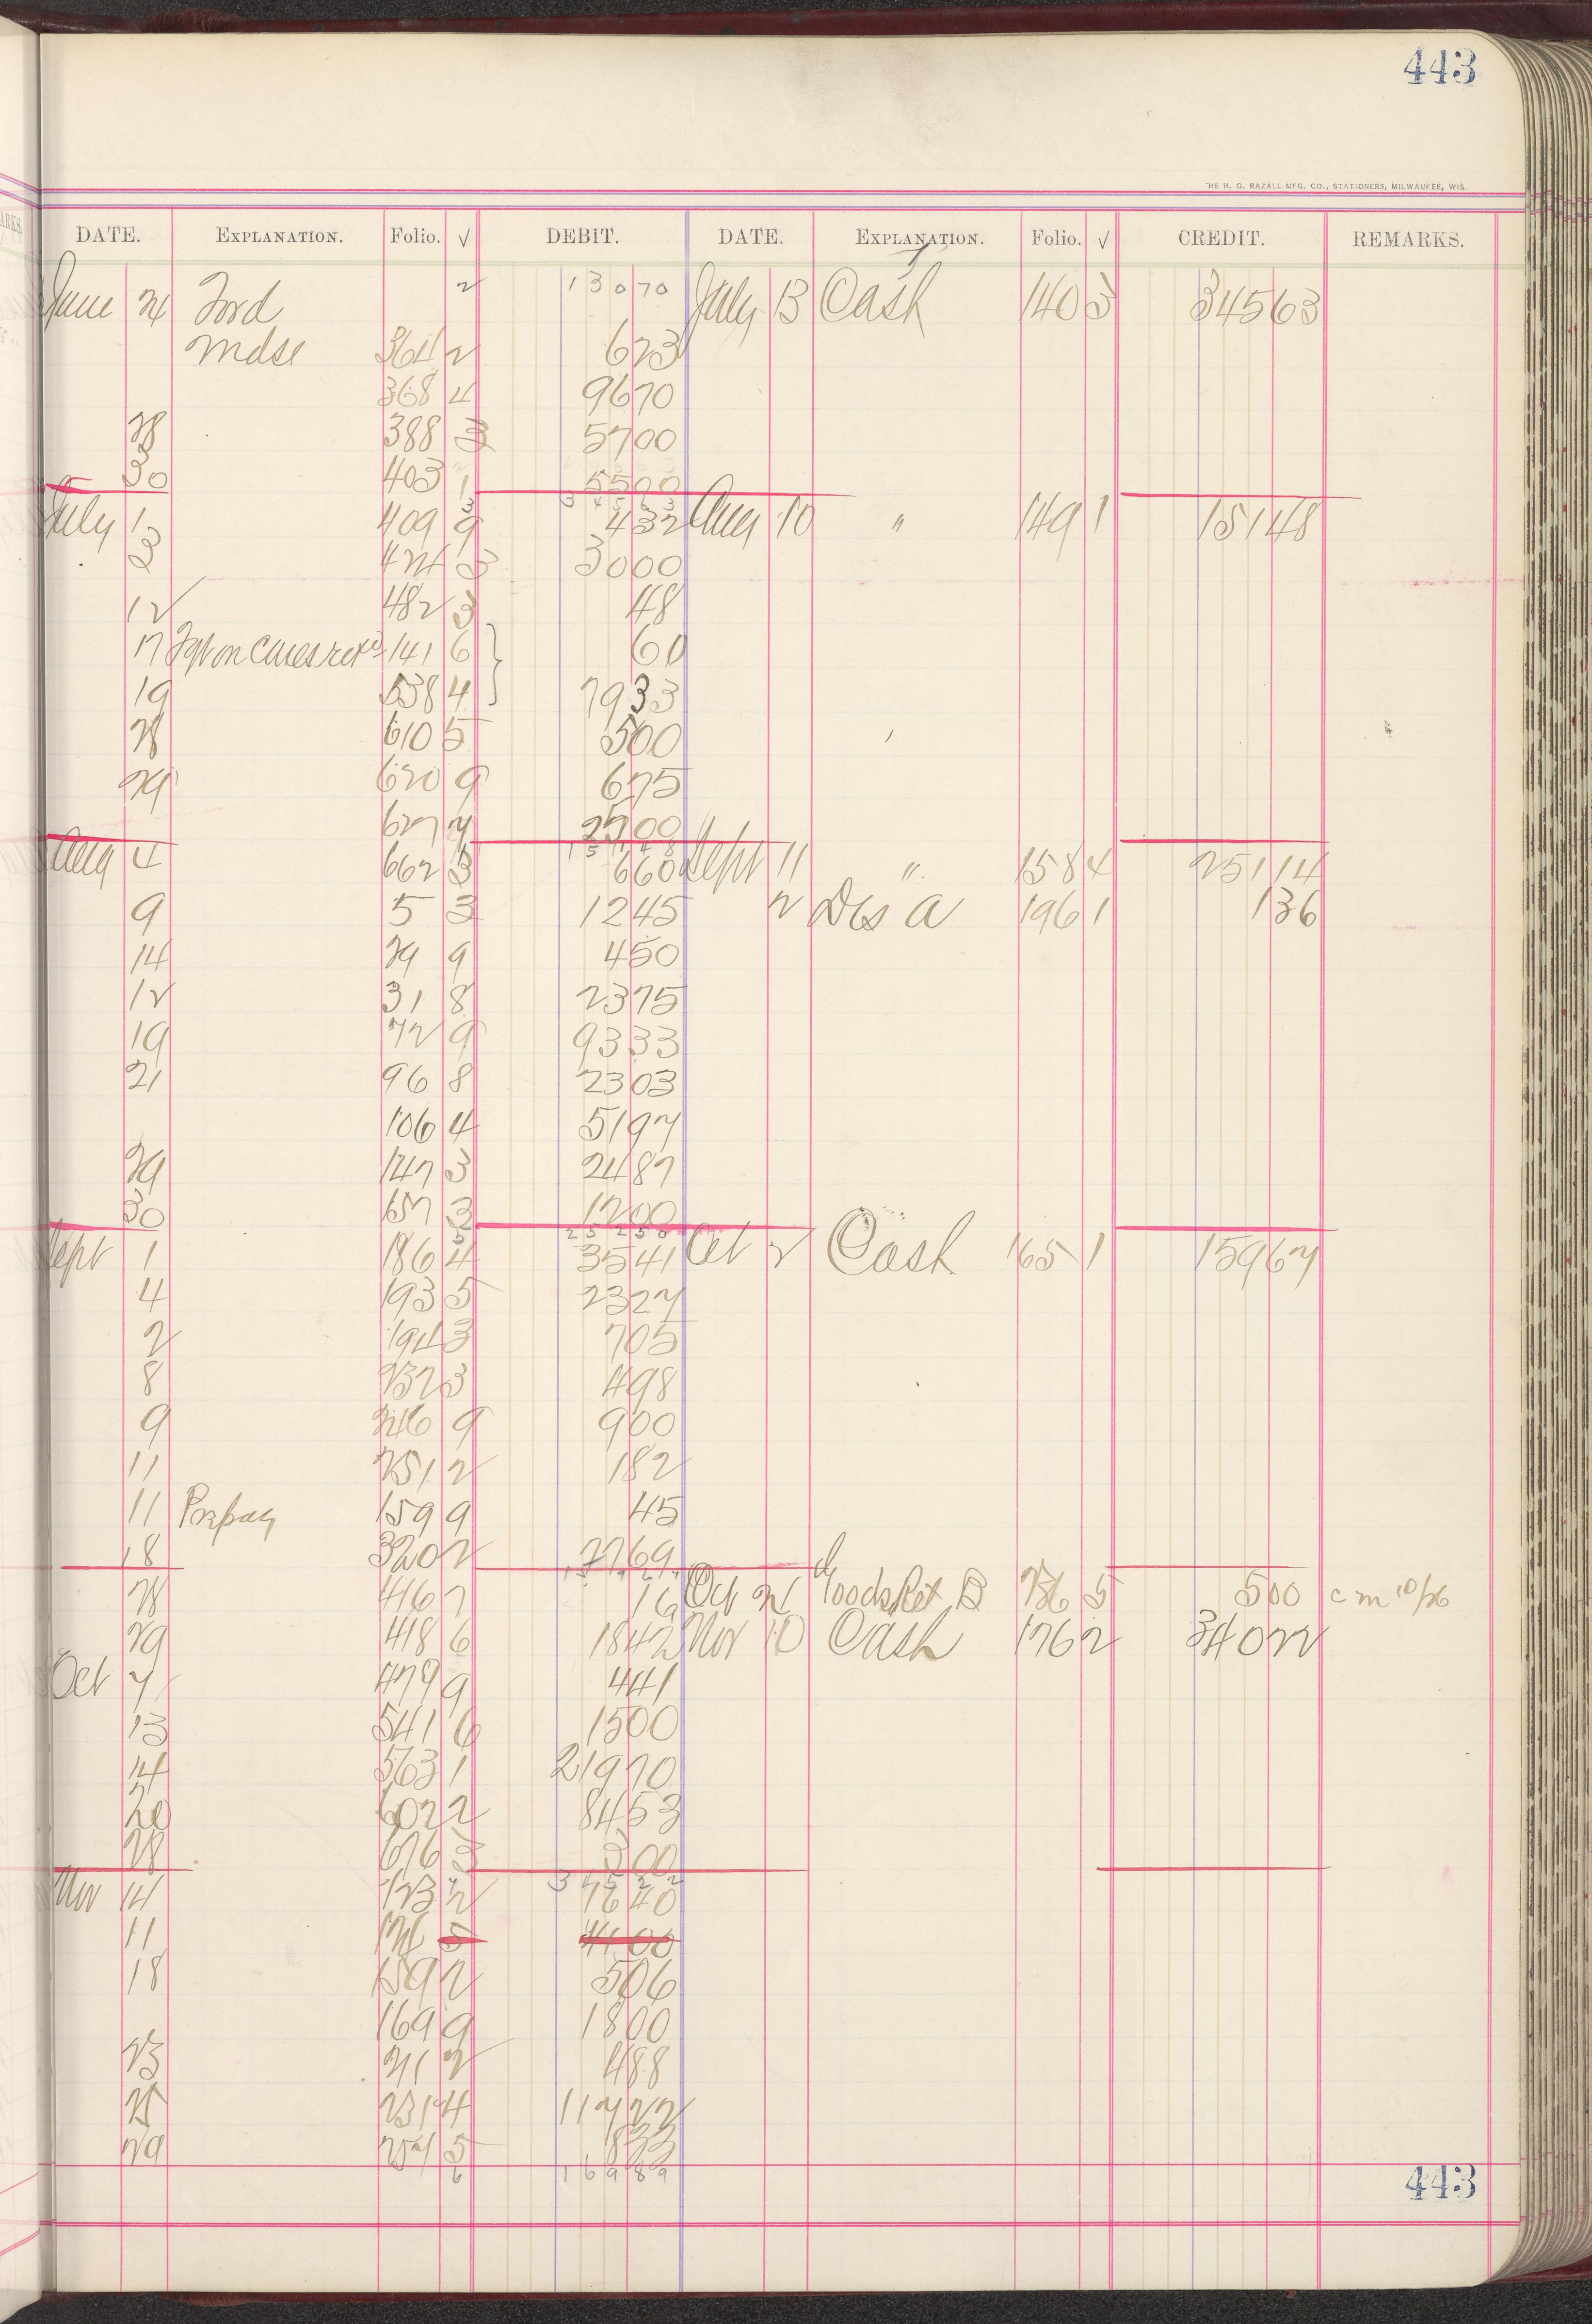 443
THE H. G. RAZALL MFG. CO., STATIONERS, MILWAUKEE, WIS.
DATE. EXPLANATION. Folio. √ DEBIT. DATE. EXPLANATION. Folio. √ CREDIT. REMARKS.
June 24 Ford 2 13070 July 13 Cash 140 3 34563
Mdse 364 2 623
368 4 9670
28 388 3 5700
30 403 1 5500
July 1 409 9 432 Aug 10 " 149 1 15148
3 424 3 3000
12 482 3 48
17 141 6 60
19 538 4 7933
28 610 5 500
29 620 9 675
627 7 2500
15148
Aug 4 662 3 660 Sept 11 " 158 4 25114
9 5 3 1245 12 Dis a 196 1 136
14 29 9 450
12 31 8 2375
19 72 9 9333
21 96 8 2303
106 4 5197
29 147 3 2487
30 157 3 1200
25250
Sept 1 186 4 3541 Oct 2 Cash 165 1 15967
4 193 5 2327
2 194 3 705
8 232 3 498
9 246 9 900
11 251 2 182
11 159 9 45
18 320 2 7769
28 416 7 16 Oct 24 Goods Ret B 236 5 500 c m 10/26
29 418 6 1842 Nov 10 Cash 176 2 34022
Oct 7 479 9 441
13 541 6 1500
14 563 1 21970
20 602 2 8453
28 676 3 300
34522
Nov 14 123 2 1640
11 5 4400
18 159 2 506
169 9 1800
23 211 2 488
25 231 4 11722
29 257 5 833
6 16989
443